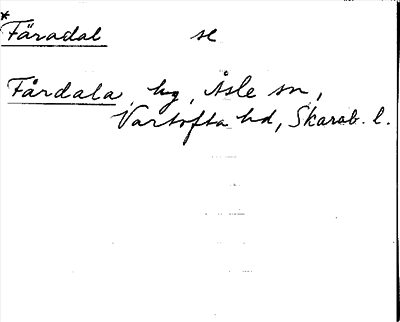 *
Färadal se
Fårdala, hg, Åsle sn,
Vartofta hd, Skarab. l.